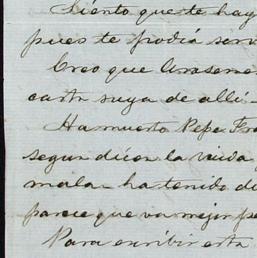 Siento que te hay
pues te podia serv
Creo que
carta suya de alli-
Ha muerto Pepe Fra
segun dicen la viuda
mala - ha tenido di
parece que va mejor pe
Para escribir esta